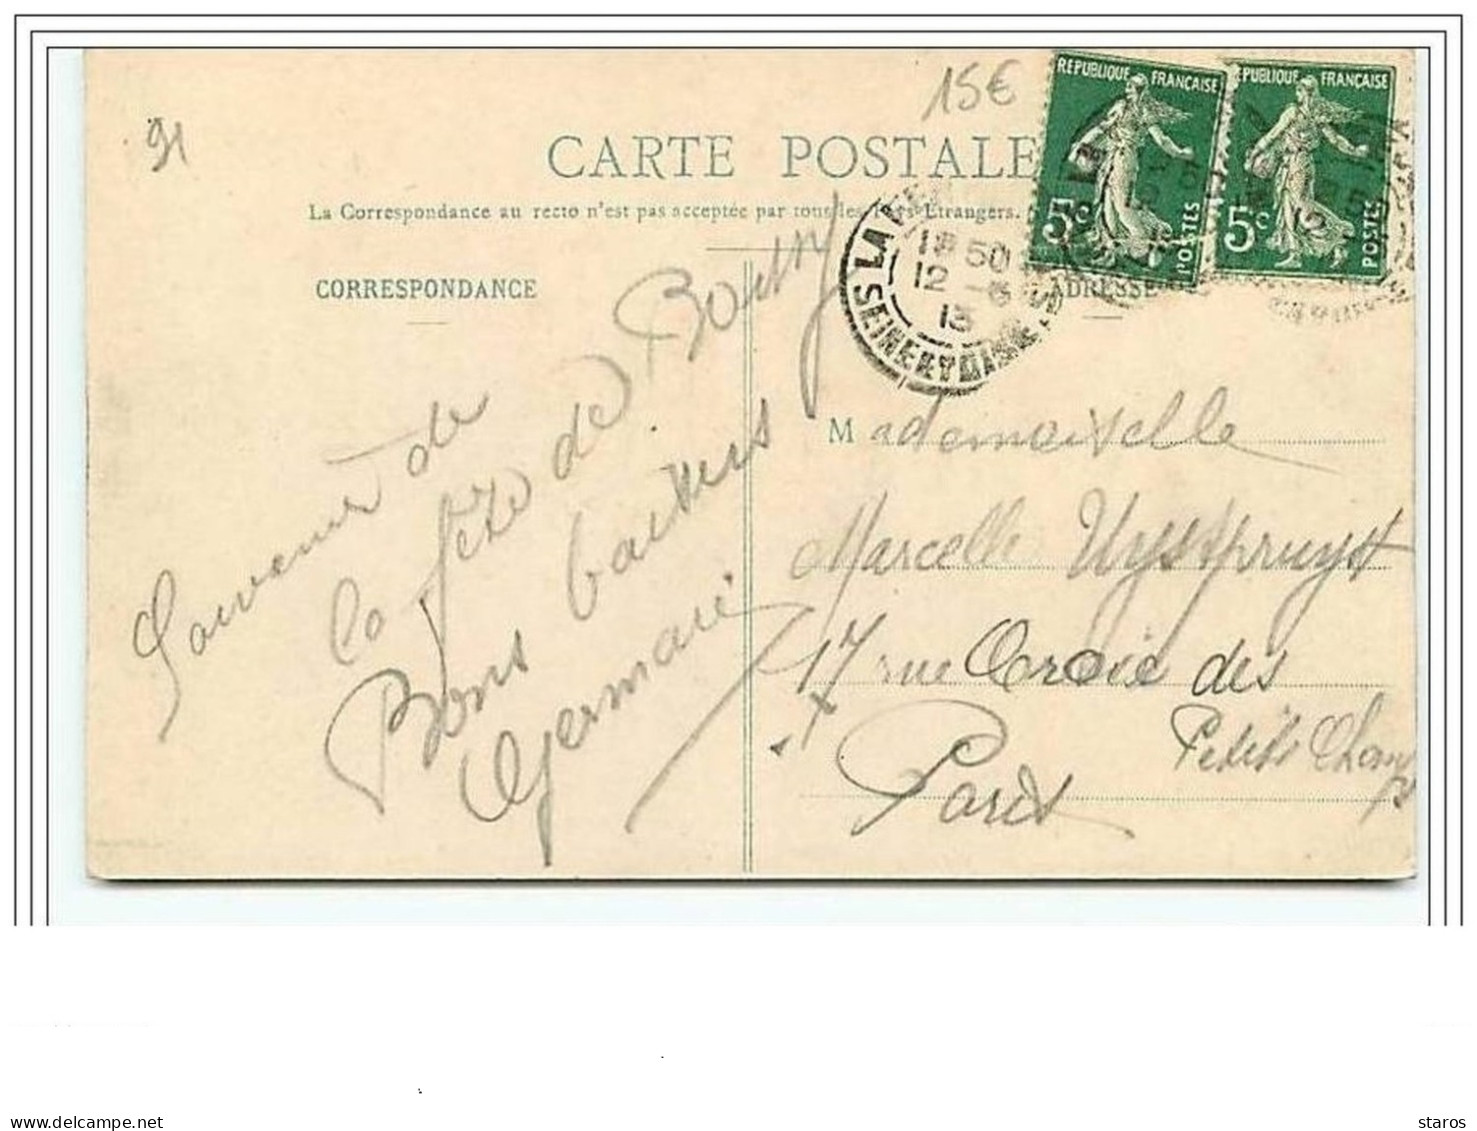 91
15€
CARTE POSTALE
La Correspondance au recto n'est pas acceptée par tous les Pays Etrangers.
CORRESPONDANCE
ADRESSE
REPUBLIQUE FRANÇAISE
5c POSTES
REPUBLIQUE FRANÇAISE
5c POSTES
LA
18 50
12 - 5
13
SEINE ET OISE
Souvenir de
la fête de
Bons baisers
Germaine
Mademoiselle
Marcelle Uystpruyst
17 rue Croix des
Petits Champs
Paris
staros